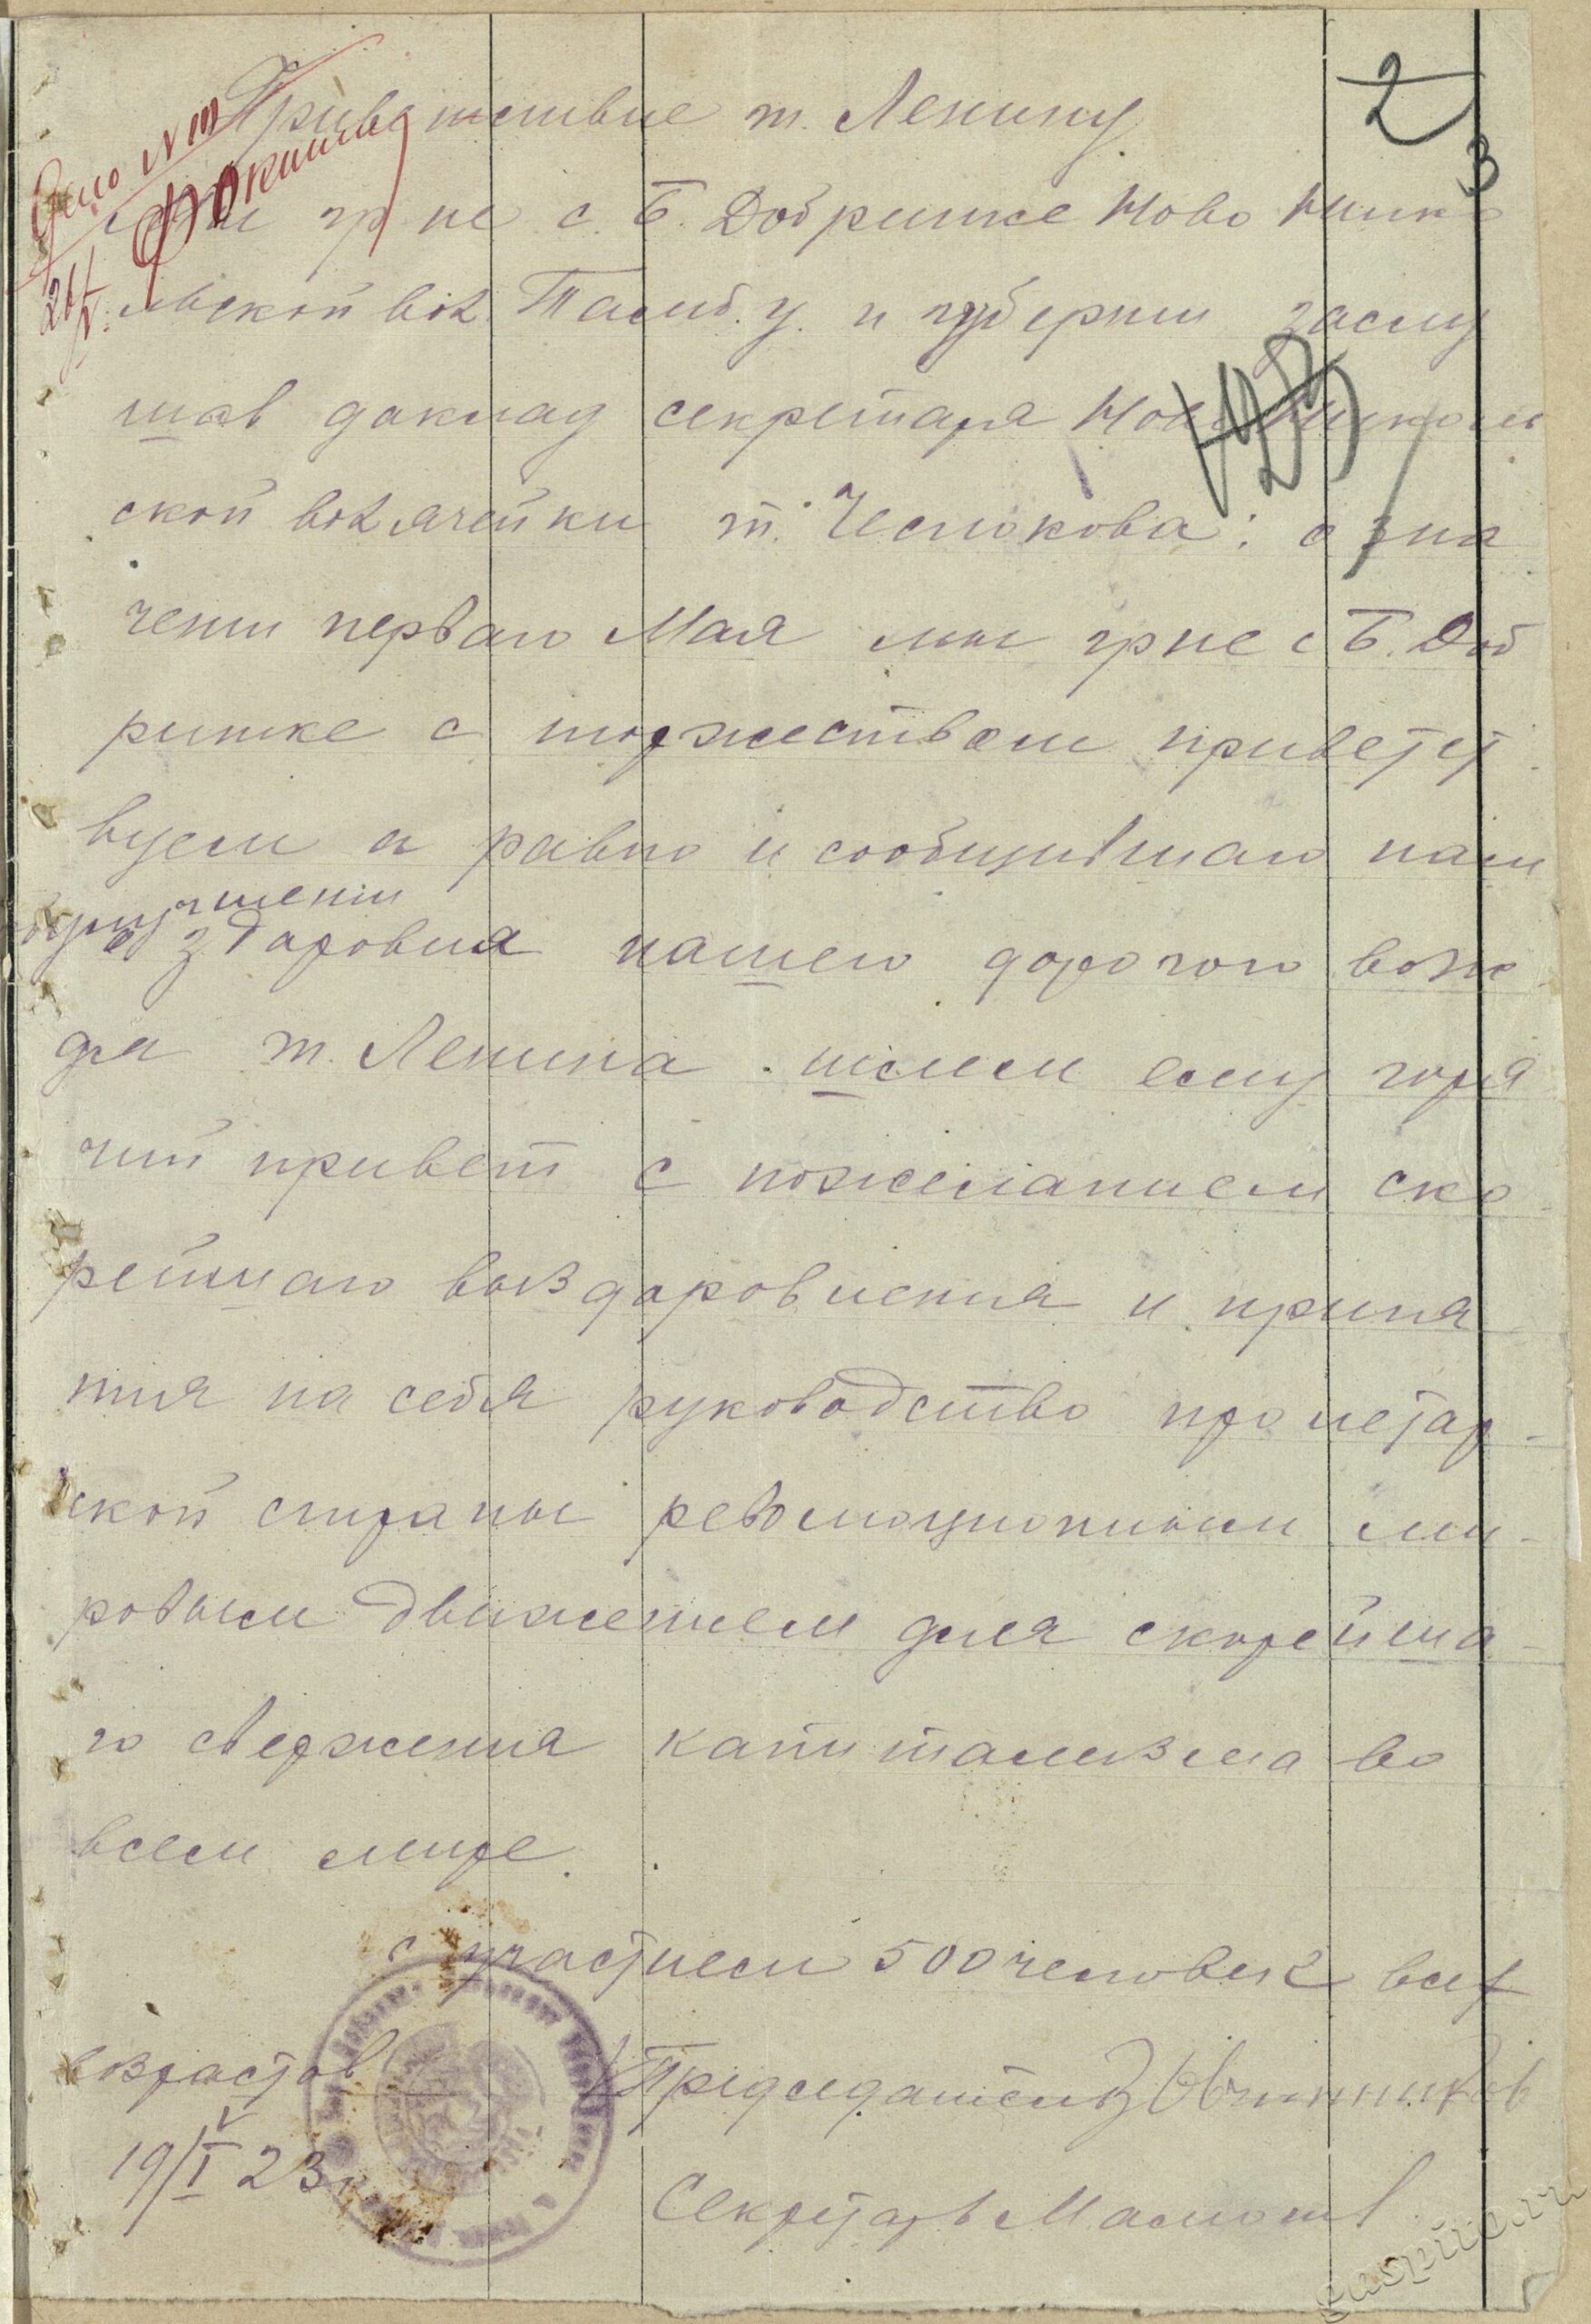 Приветствие т. Ленину
2
3
Дело №
Фокиным
мы гр не с. Б. Добринке Ново Нико
льской вол. Тамб. у. и губернии заслу
шав доклад секретаря Ново Николь
ской вол ячейки т. Чеснокова: о зна
чении перваго Мая мы гр не с Б. Доб
ринке с торжеством приветст
вуем а равно и сообщившаго нам
о улучшении
здаровия нашего дорогого вож
дя т. Ленина. шлем ему горя
чий привет с пожеланием ско
рейшаго выздоровления и приня
тия на себя руководство пролетар-
ской страны революционным ми-
ровым движением для скорейша-
го свержения капитализма во
всем мире.
с участием 500 человек всех
возрастов
Председатель Овчинников
19 23 г
Секретарь
guspiro.ru